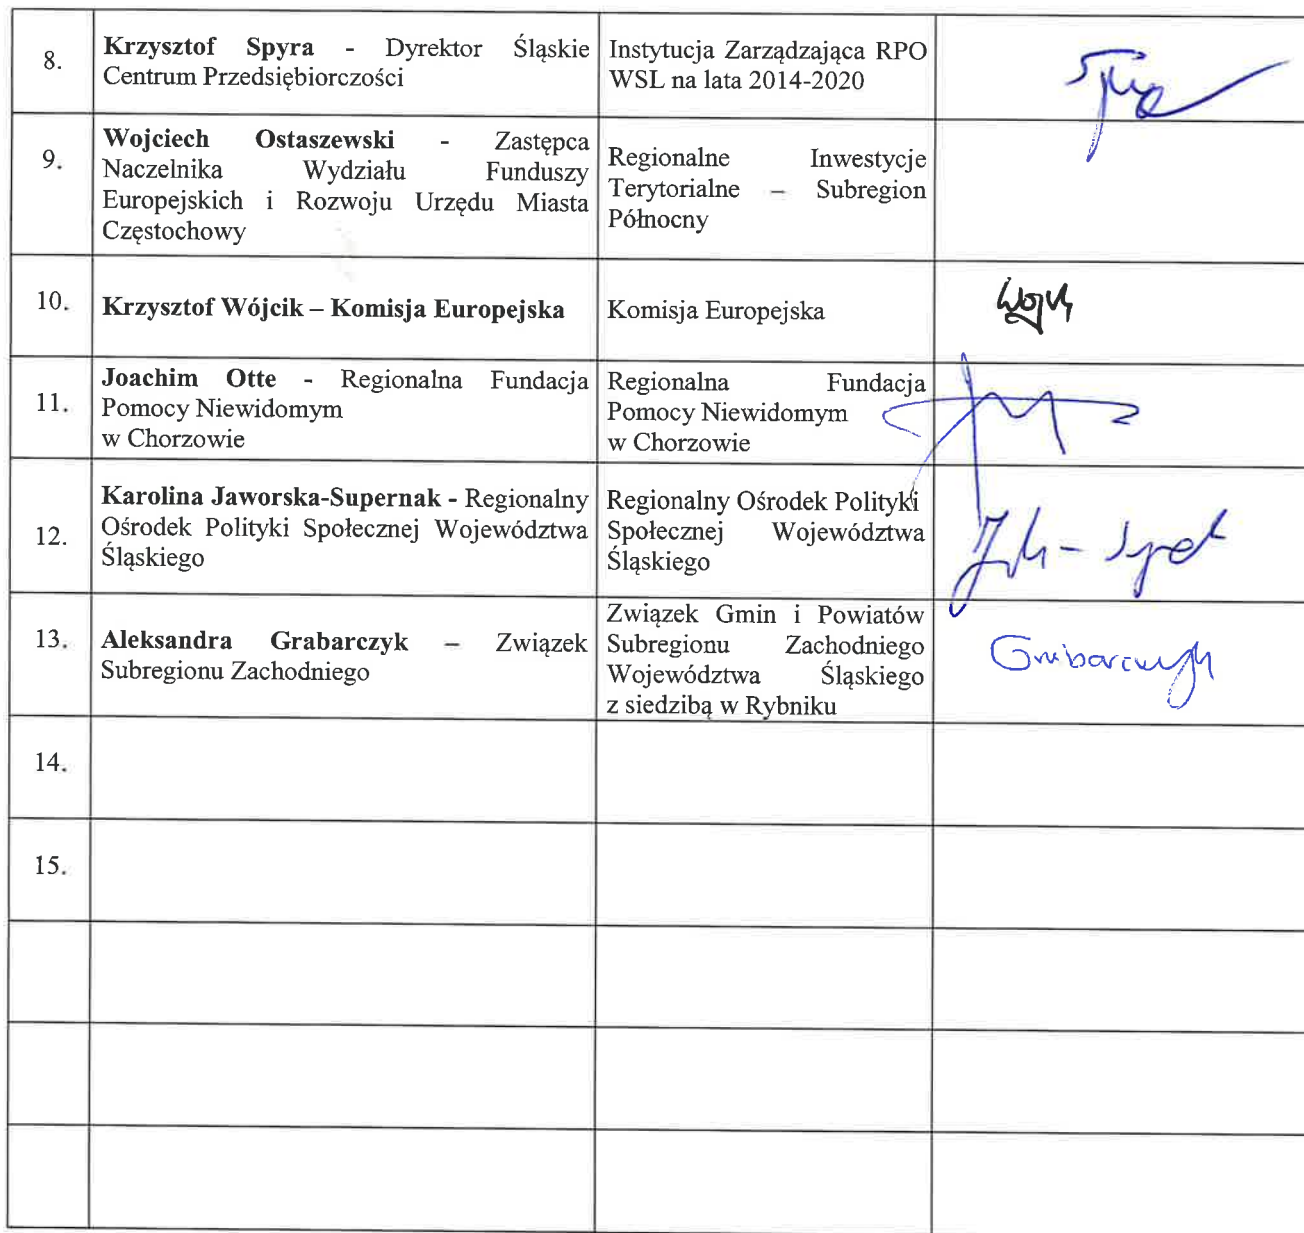 8.
Krzysztof Spyra - Dyrektor Śląskie
Centrum Przedsiębiorczości
Instytucja Zarządzająca RPO
WSL na lata 2014-2020
9.
Wojciech Ostaszewski - Zastępca
Naczelnika Wydziału Funduszy
Europejskich i Rozwoju Urzędu Miasta
Częstochowy
Regionalne Inwestycje
Terytorialne – Subregion
Północny
10.
Krzysztof Wójcik – Komisja Europejska
Komisja Europejska
11.
Joachim Otte - Regionalna Fundacja
Pomocy Niewidomym
w Chorzowie
Regionalna Fundacja
Pomocy Niewidomym
w Chorzowie
12.
Karolina Jaworska-Supernak - Regionalny
Ośrodek Polityki Społecznej Województwa
Śląskiego
Regionalny Ośrodek Polityki
Społecznej Województwa
Śląskiego
13.
Aleksandra Grabarczyk – Związek
Subregionu Zachodniego
Związek Gmin i Powiatów
Subregionu Zachodniego
Województwa Śląskiego
z siedzibą w Rybniku
Grabarczyk
14.
15.